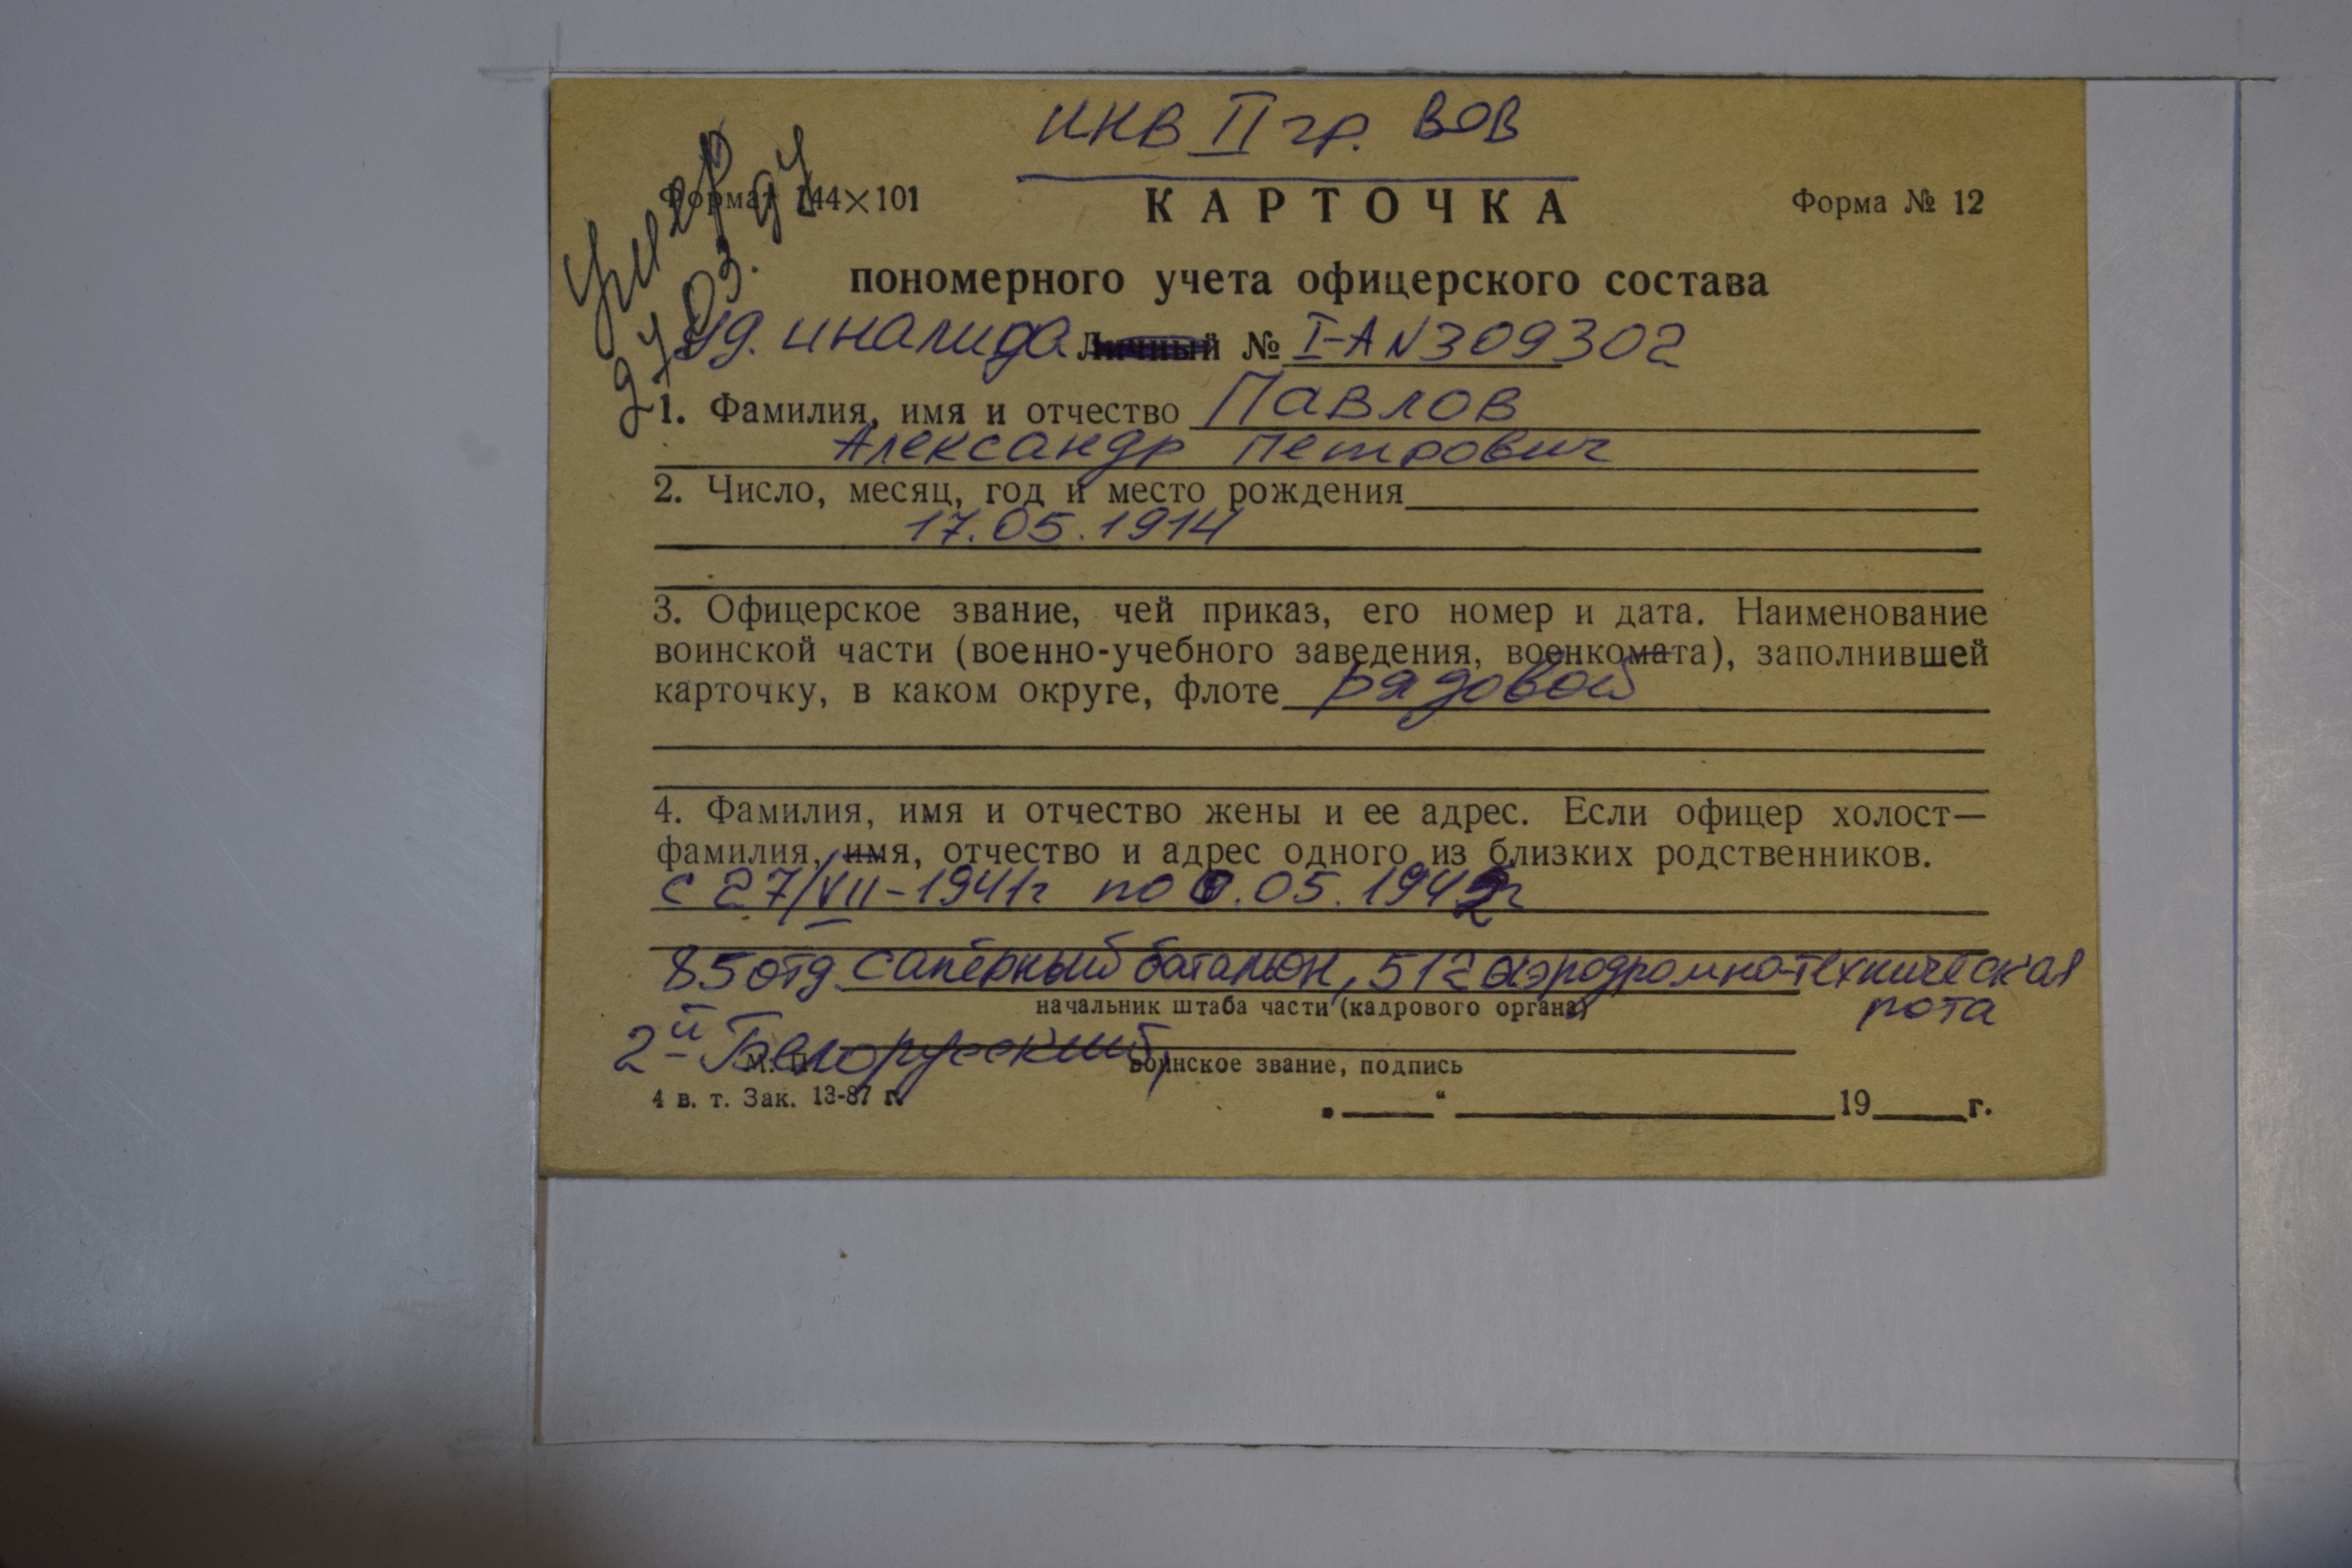 инв II гр. ВОВ
Умер
27.03.94
Формат 144×101
КАРТОЧКА
Форма № 12
пономерного учета офицерского состава
Уд. иналида Личный № I-А N309302
1. Фамилия, имя и отчество Павлов
Александр Петрович
2. Число, месяц, год и место рождения
17.05.1914
3. Офицерское звание, чей приказ, его номер и дата. Наименование
воинской части (военно-учебного заведения, военкомата), заполнившей
карточку, в каком округе, флоте рядовой
4. Фамилия, имя и отчество жены и ее адрес. Если офицер холост—
фамилия, имя, отчество и адрес одного из близких родственников.
с 27/VII-1941г по .05.1942г
85 отд сапёрный батальон, 512 аэродромно-техническая
начальник штаба части (кадрового органа)
рота
2-й Белорусский,
М. П.
воинское звание, подпись
4 в. т. Зак. 13-87 г.
„ “ 19 г.